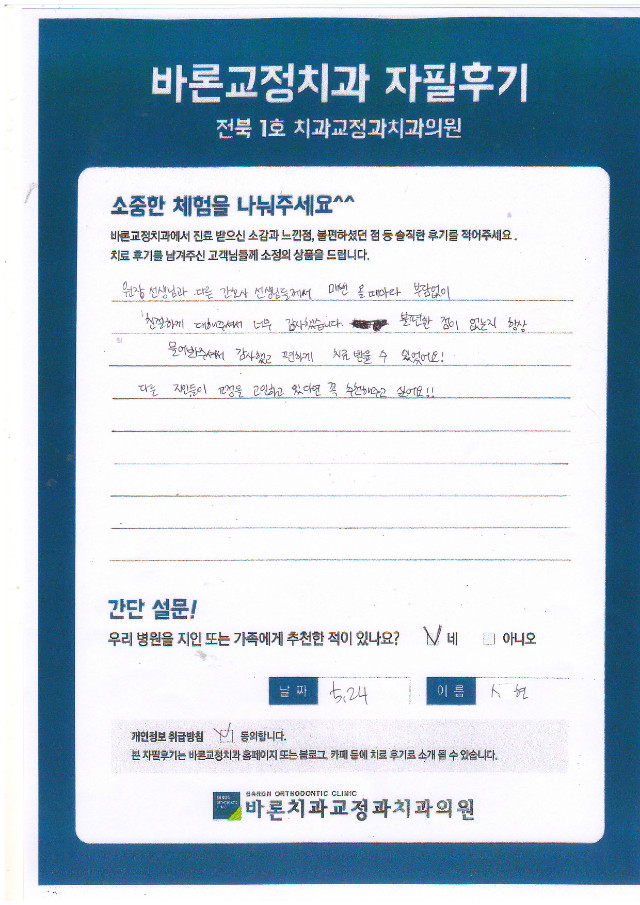 바론교정치과 자필후기
전북 1호 치과교정과치과의원
소중한 체험을 나눠주세요^^
바론교정치과에서 진료 받으신 소감과 느낀점, 불편하셨던 점 등 솔직한 후기를 적어주세요.
치료 후기를 남겨주신 고객님들께 소정의 상품을 드립니다.
원장 선생님과 다른 간호사 선생님들께서 매번 올때마다 부담없이
친절하게 대해주셔서 너무 감사했습니다. 불편한 점이 있는지 항상
물어봐주셔서 감사했고 편하게 치료 받을 수 있었어요!
다른 지인들이 교정을 고민하고 있다면 꼭 추천해주고 싶어요!!
간단 설문!
우리 병원을 지인 또는 가족에게 추천한 적이 있나요? 네 아니오
날짜 5.24 이름 현
개인정보 취급방침 동의합니다.
본 자필후기는 바론교정치과 홈페이지 또는 블로그, 카페 등에 치료 후기로 소개 될 수 있습니다.
BARON ORTHODONTIC CLINIC
바론치과교정과치과의원